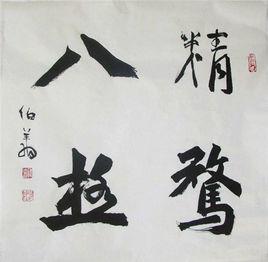 精骛
八极
伯羊翁